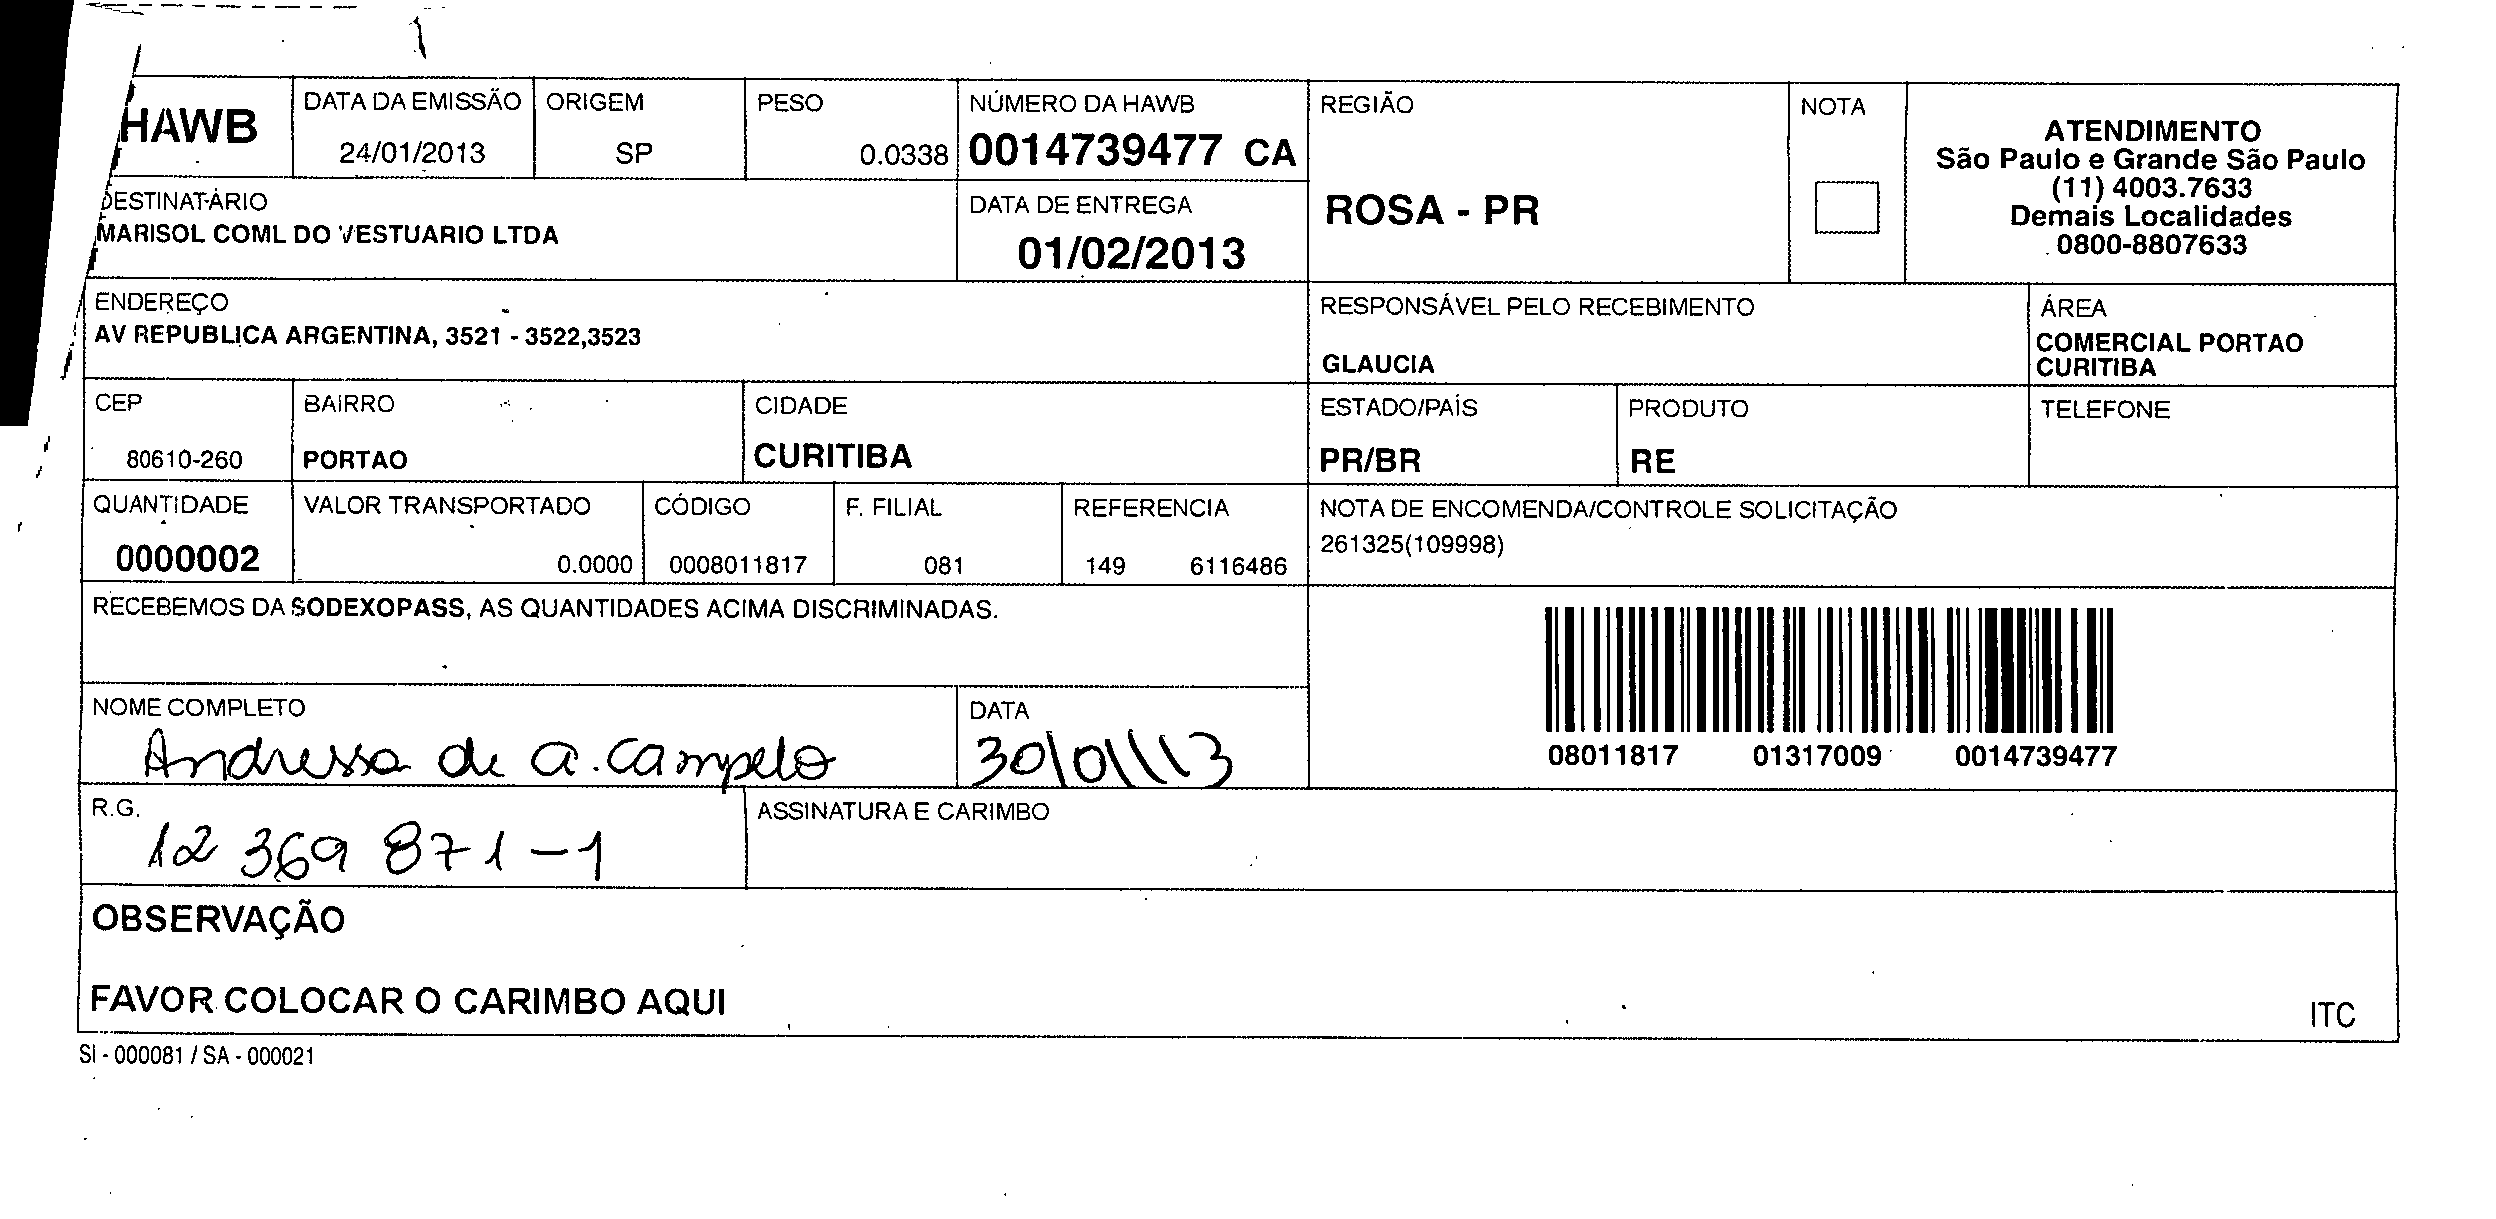 HAWB
DATA DA EMISSÃO
24/01/2013
ORIGEM
SP
PESO
0.0338
NÚMERO DA HAWB
0014739477 CA
REGIÃO
ROSA - PR
NOTA
ATENDIMENTO
São Paulo e Grande São Paulo
(11) 4003.7633
Demais Localidades
0800-8807633
DESTINATÁRIO
MARISOL COML DO VESTUARIO LTDA
DATA DE ENTREGA
01/02/2013
ENDEREÇO
AV REPUBLICA ARGENTINA, 3521 - 3522,3523
RESPONSÁVEL PELO RECEBIMENTO
GLAUCIA
ÁREA
COMERCIAL PORTAO
CURITIBA
CEP
80610-260
BAIRRO
PORTAO
CIDADE
CURITIBA
ESTADO/PAÍS
PR/BR
PRODUTO
RE
TELEFONE
QUANTIDADE
0000002
VALOR TRANSPORTADO
0.0000
CÓDIGO
0008011817
F. FILIAL
081
REFERENCIA
149 6116486
NOTA DE ENCOMENDA/CONTROLE SOLICITAÇÃO
261325(109998)
RECEBEMOS DA SODEXOPASS, AS QUANTIDADES ACIMA DISCRIMINADAS.
08011817 01317009 0014739477
NOME COMPLETO
Andressa de a. Campelo
DATA
30/01/13
R.G.
12 369 871-1
ASSINATURA E CARIMBO
OBSERVAÇÃO
FAVOR COLOCAR O CARIMBO AQUI
ITC
SI - 000081 / SA - 000021